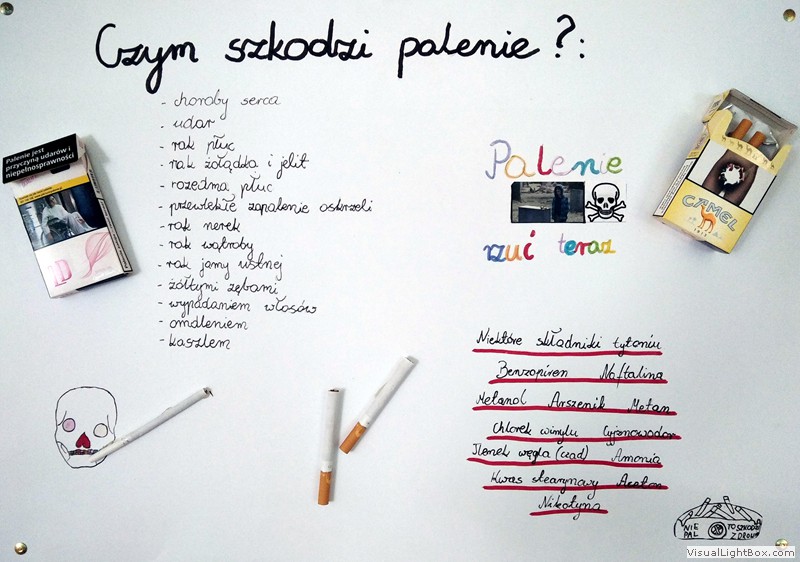 Czym szkodzi palenie?:
- choroby serca
- udar
- rak płuc
- rak żołądka i jelit
- rozedma płuc
- przewlekłe zapalenie oskrzeli
- rak nerek
- rak wątroby
- rak jamy ustnej
- żółtymi zębami
- wypadaniem włosów
- omdleniem
- kaszlem
Palenie jest
przyczyną udarów i
niepełnosprawności
Palenie
rzuć teraz
CAMEL
1913
Niektóre składniki tytoniu
Benzopiren Naftalina
Metanol Arszenik Metan
Chlorek winylu Cyjanowodór
Tlenek węgla (czad) Amonia
Kwas stearynowy Aceton
Nikotyna
NIE PAL
TO SZKODZI ZDROWIU
VisualLightBox.com